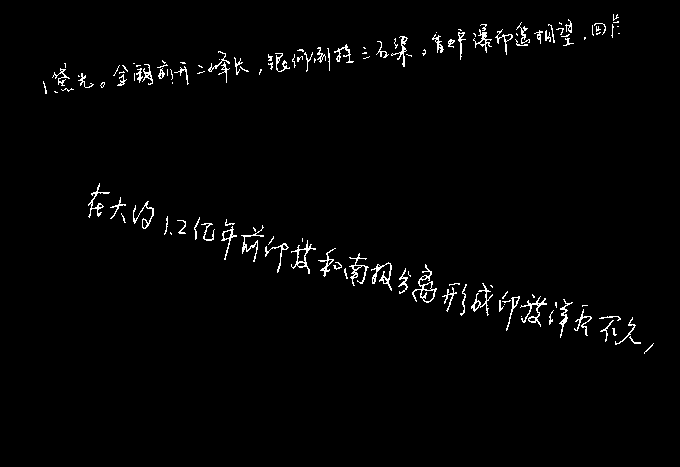 黛光。金阙前开二峰长，银河倒挂三石梁。香炉瀑布遥相望，回
在大约1.2亿年前印度和南极分离形成印度洋后不久，